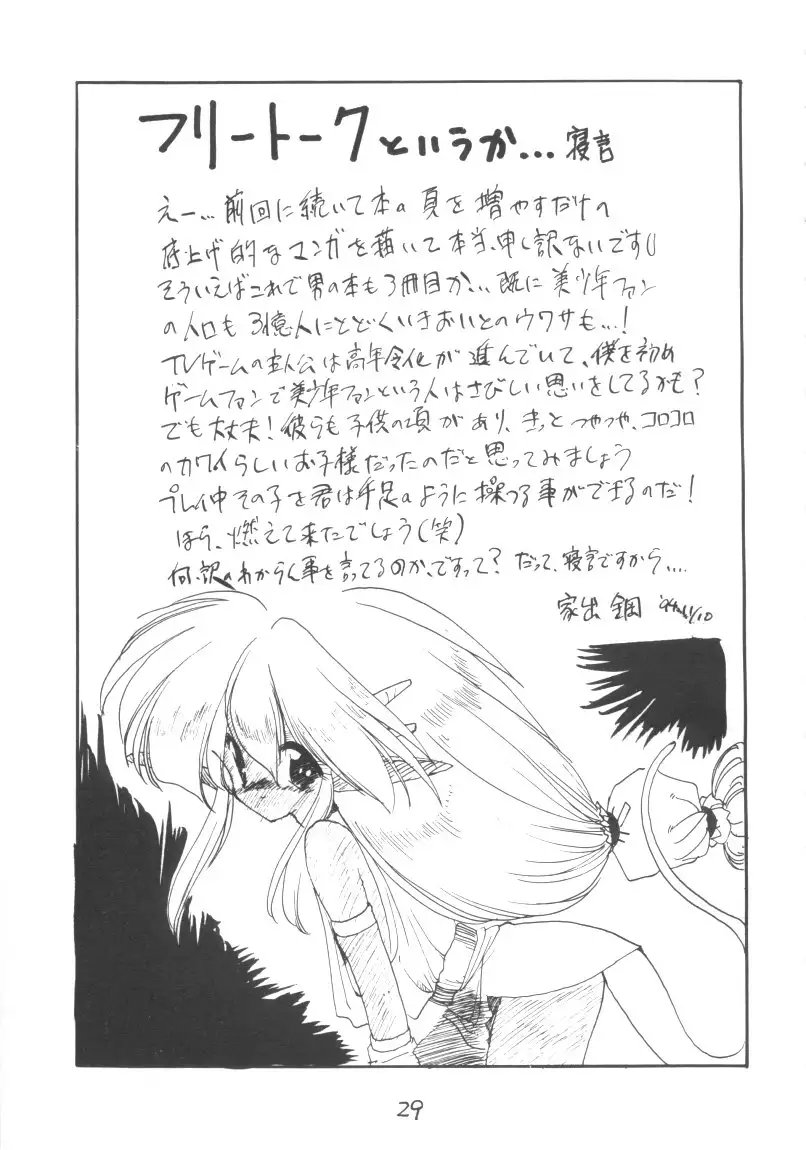 フリートークというか… 寝言
えー… 前回に続いて本の頁を増やすだけの
底上げ的なマンガを描いて本当、申し訳ないです
そういえばこれで男の本も3冊目か… 既に美少年ファン
の人口も3億人にとどくいきおいとのウワサも…!
TVゲームの主人公は高年令化が進んでいて、僕を初め
ゲームファンで美少年ファンという人はさびしい思いをしてるかも?
でも大丈夫! 彼らも子供の頃があり、きっとつやつや、コロコロ
のカワイらしいお子様だったのだと思ってみましょう
プレイ中その子を君は手足のように操つる事ができるのだ!
ほら、燃えて来たでしょう(笑)
何、訳のわからん事を言ってるのか、ですって? だって、寝言ですから….
家出 鋼
29